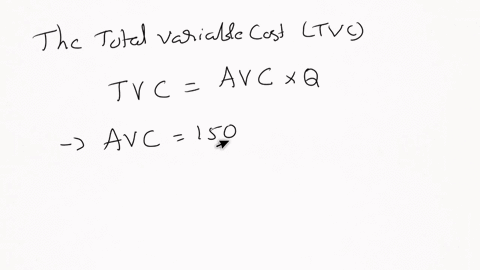 The Total variable Cost (TVC)
TVC = AVC × Q
→ AVC = 150